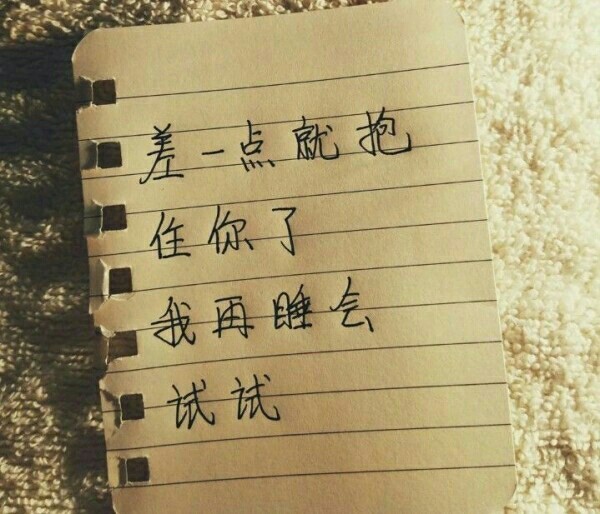 差一点就抱
住你了
我再睡会
试试